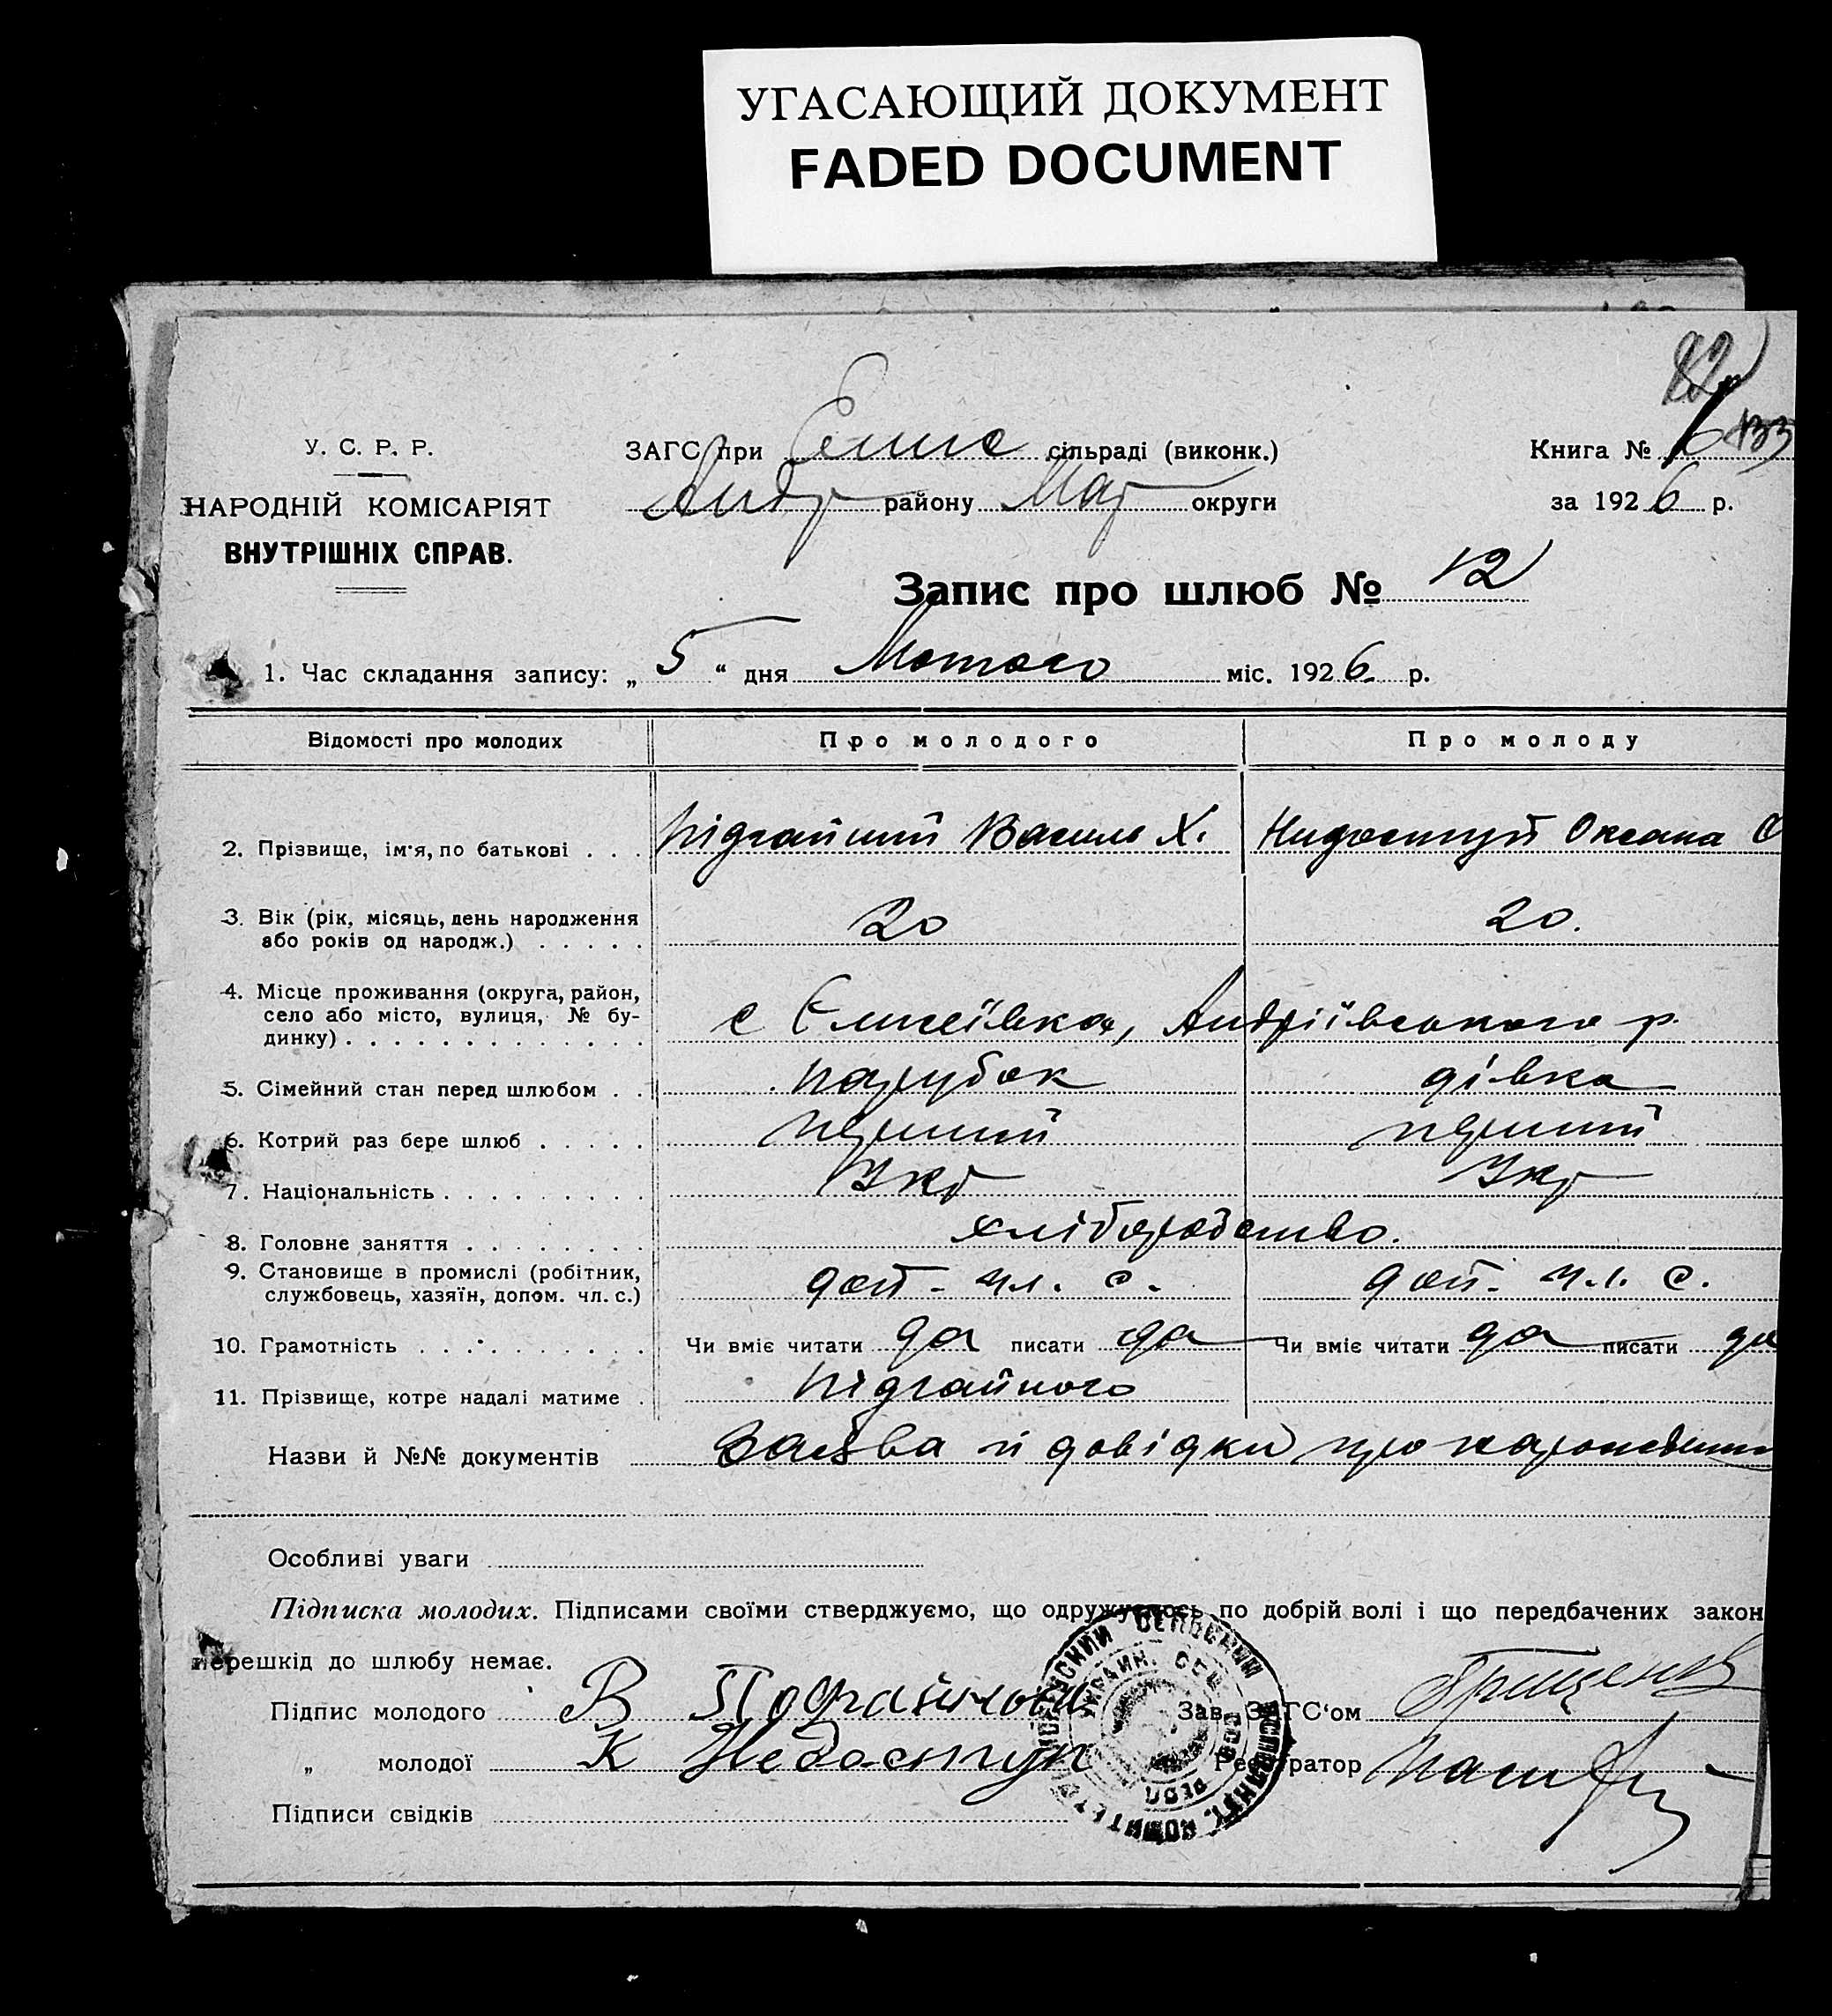 УГАСАЮЩИЙ ДОКУМЕНТ
FADED DOCUMENT
У. С. Р. Р.
НАРОДНІЙ КОМІСАРІЯТ
ВНУТРІШНІХ СПРАВ.
ЗАГС при Елисе сільраді (виконк.)
Андр району Мар округи
Книга № 6 133
за 1926 р.
Запис про шлюб № 12
1. Час складання запису: „ 5 “ дня Лютого міс. 1926. р.
Відомості про молодих Про молодого Про молоду
2. Прізвище, ім'я, по батькові . . . Підгайний Василь Х. Нидоступ Оксана О
3. Вік (рік, місяць, день народження
або років од народж.) . . . . . 20 20.
4. Місце проживання (округа, район,
село або місто, вулиця, № бу-
динку) . . . . . . . . . . . . . с Єлисеївка, Андріївського р.
5. Сімейний стан перед шлюбом . . парубок дівка
6. Котрий раз бере шлюб . . . . . перший перший
7. Національність . . . . . . . . . Укр Укр
8. Головне заняття . . . . . . . . хліборобство.
9. Становище в промислі (робітник,
службовець, хазяїн, допом. чл. с.) доп. чл. с. доп. чл. с.
10. Грамотність . . . . . . . . . . Чи вміє читати да писати да Чи вміє читати да писати да
11. Прізвище, котре надалі матиме . Підгайного
Назви й №№ документів Заява й довідки про народження
Особливі уваги
Підписка молодих. Підписами своїми стверджуємо, що одружуємось по добрій волі і що передбачених закон
перешкід до шлюбу немає.
Підпис молодого В Подгайный Зав. ЗАГС'ом Грищенко
„ молодої К Недоступ Реєстратор
Підписи свідків